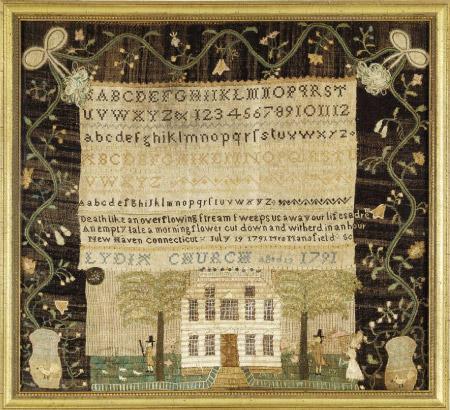 ABCDEFGHIKLMNOPQRST
UVWXYZ 123456789101112
abcdefghiklmnopqrſstuvwxyz
ABCDEFGHIKLMNOPQRSTU
VWXYZ
abcdefghiklmnopqrſstuvwxyz
Death like an overflowing ſtream ſweeps us away our life s a dre
An empty tale a morning flower cut down and witherd in an hour
New Haven Connecticut July 19 1791 Mrs Mansfield Sc
LYDIA CHURCH aged 13 1791